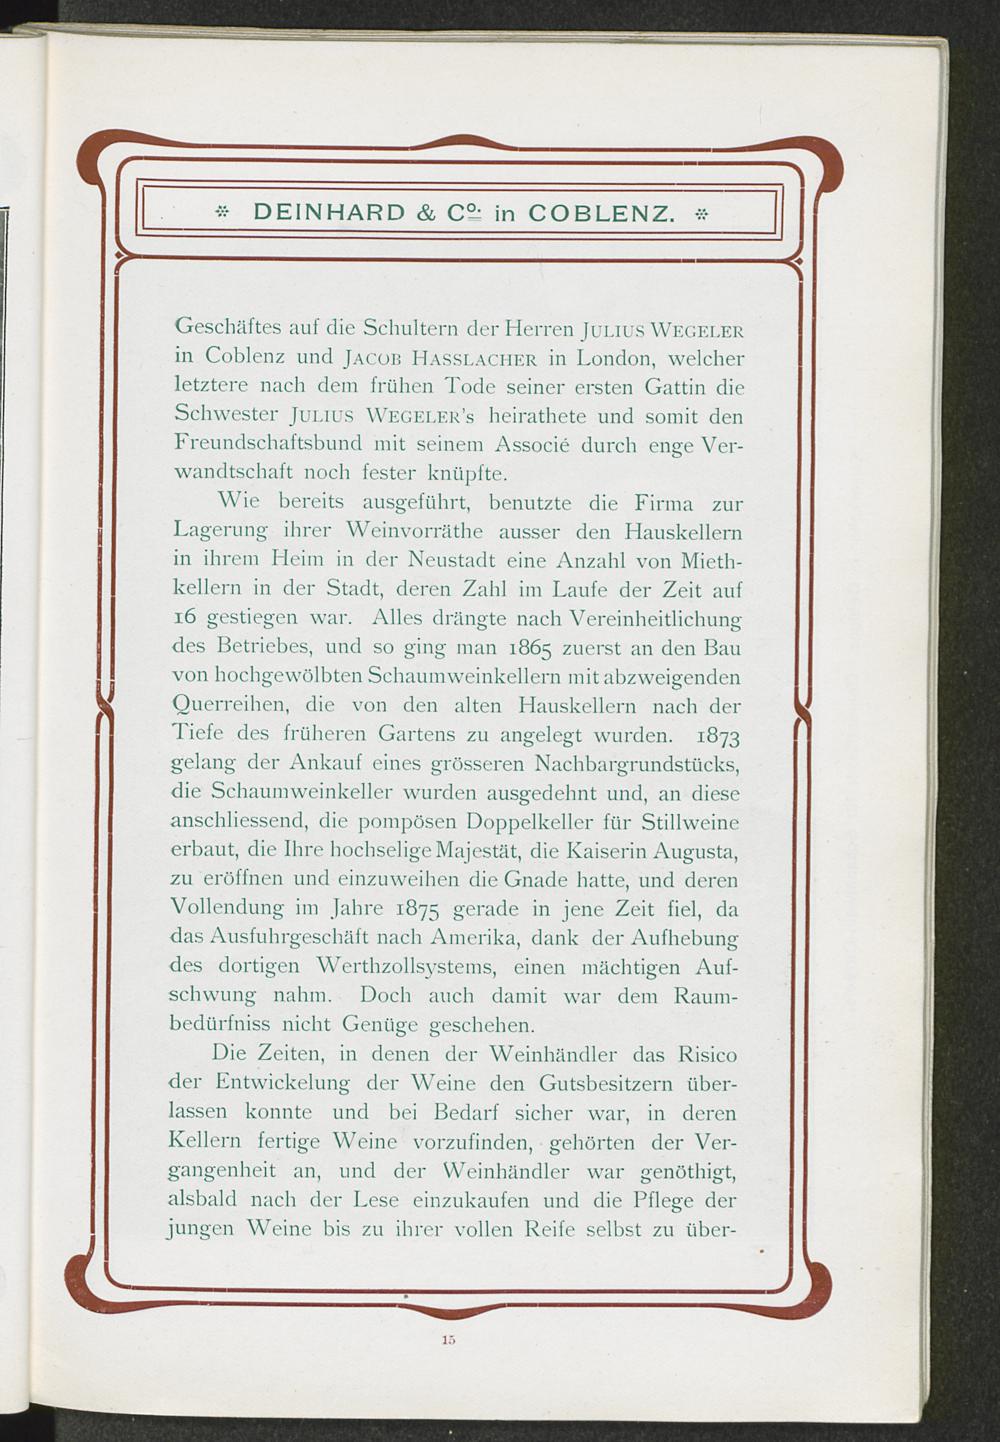 ※ DEINHARD & Co. in COBLENZ. ※
Geschäftes auf die Schultern der Herren JULIUS WEGELER
in Coblenz und JACOB HASSLACHER in London, welcher
letztere nach dem frühen Tode seiner ersten Gattin die
Schwester JULIUS WEGELER's heirathete und somit den
Freundschaftsbund mit seinem Associé durch enge Ver-
wandtschaft noch fester knüpfte.
Wie bereits ausgeführt, benutzte die Firma zur
Lagerung ihrer Weinvorräthe ausser den Hauskellern
in ihrem Heim in der Neustadt eine Anzahl von Mieth-
kellern in der Stadt, deren Zahl im Laufe der Zeit auf
16 gestiegen war. Alles drängte nach Vereinheitlichung
des Betriebes, und so ging man 1865 zuerst an den Bau
von hochgewölbten Schaumweinkellern mit abzweigenden
Querreihen, die von den alten Hauskellern nach der
Tiefe des früheren Gartens zu angelegt wurden. 1873
gelang der Ankauf eines grösseren Nachbargrundstücks,
die Schaumweinkeller wurden ausgedehnt und, an diese
anschliessend, die pompösen Doppelkeller für Stillweine
erbaut, die Ihre hochselige Majestät, die Kaiserin Augusta,
zu eröffnen und einzuweihen die Gnade hatte, und deren
Vollendung im Jahre 1875 gerade in jene Zeit fiel, da
das Ausfuhrgeschäft nach Amerika, dank der Aufhebung
des dortigen Werthzollsystems, einen mächtigen Auf-
schwung nahm. Doch auch damit war dem Raum-
bedürfniss nicht Genüge geschehen.
Die Zeiten, in denen der Weinhändler das Risico
der Entwickelung der Weine den Gutsbesitzern über-
lassen konnte und bei Bedarf sicher war, in deren
Kellern fertige Weine vorzufinden, gehörten der Ver-
gangenheit an, und der Weinhändler war genöthigt,
alsbald nach der Lese einzukaufen und die Pflege der
jungen Weine bis zu ihrer vollen Reife selbst zu über-
15